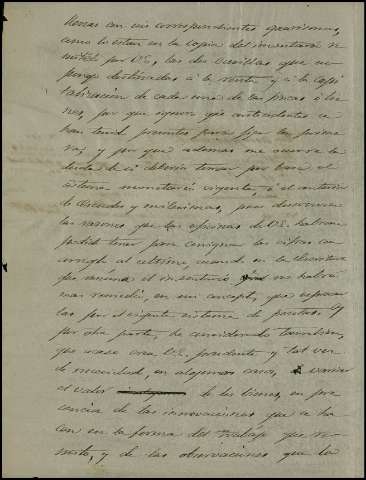 llenas con sus correspondientes guarismos,
como lo estan en la copia del inventario re-
mitido por VE, las dos casillas que su-
pongo destinadas á la renta y á la capi-
talizacion de cada una de las fincas ó bie-
nes, por que ignoro que antecedentes se
han tenido presentes para fijar la primera
vez, y por que ademas me ocurre la
duda de si deberia tomar por base el
sistema monetario vigente, ó el anterior
de Escudos y milesimas, pues desconozco
las razones que las oficinas de VE. habran
podido tener para consignar las cifras con
arreglo al ultimo, cuando en la Escritura
que reciba el inventario no habrá
mas remedio, en mi concepto, que espresar
las por el vigente sistema de pesetas. Y
por otra parte, he considerado tambien,
que acaso crea VE. prudente y tal vez
de necesidad, en algunos casos, variar
el valor de los bienes, en pre-
sencia de las innovaciones que se ha-
cen en la forma del trabajo que re-
mito, y de las observaciones que la